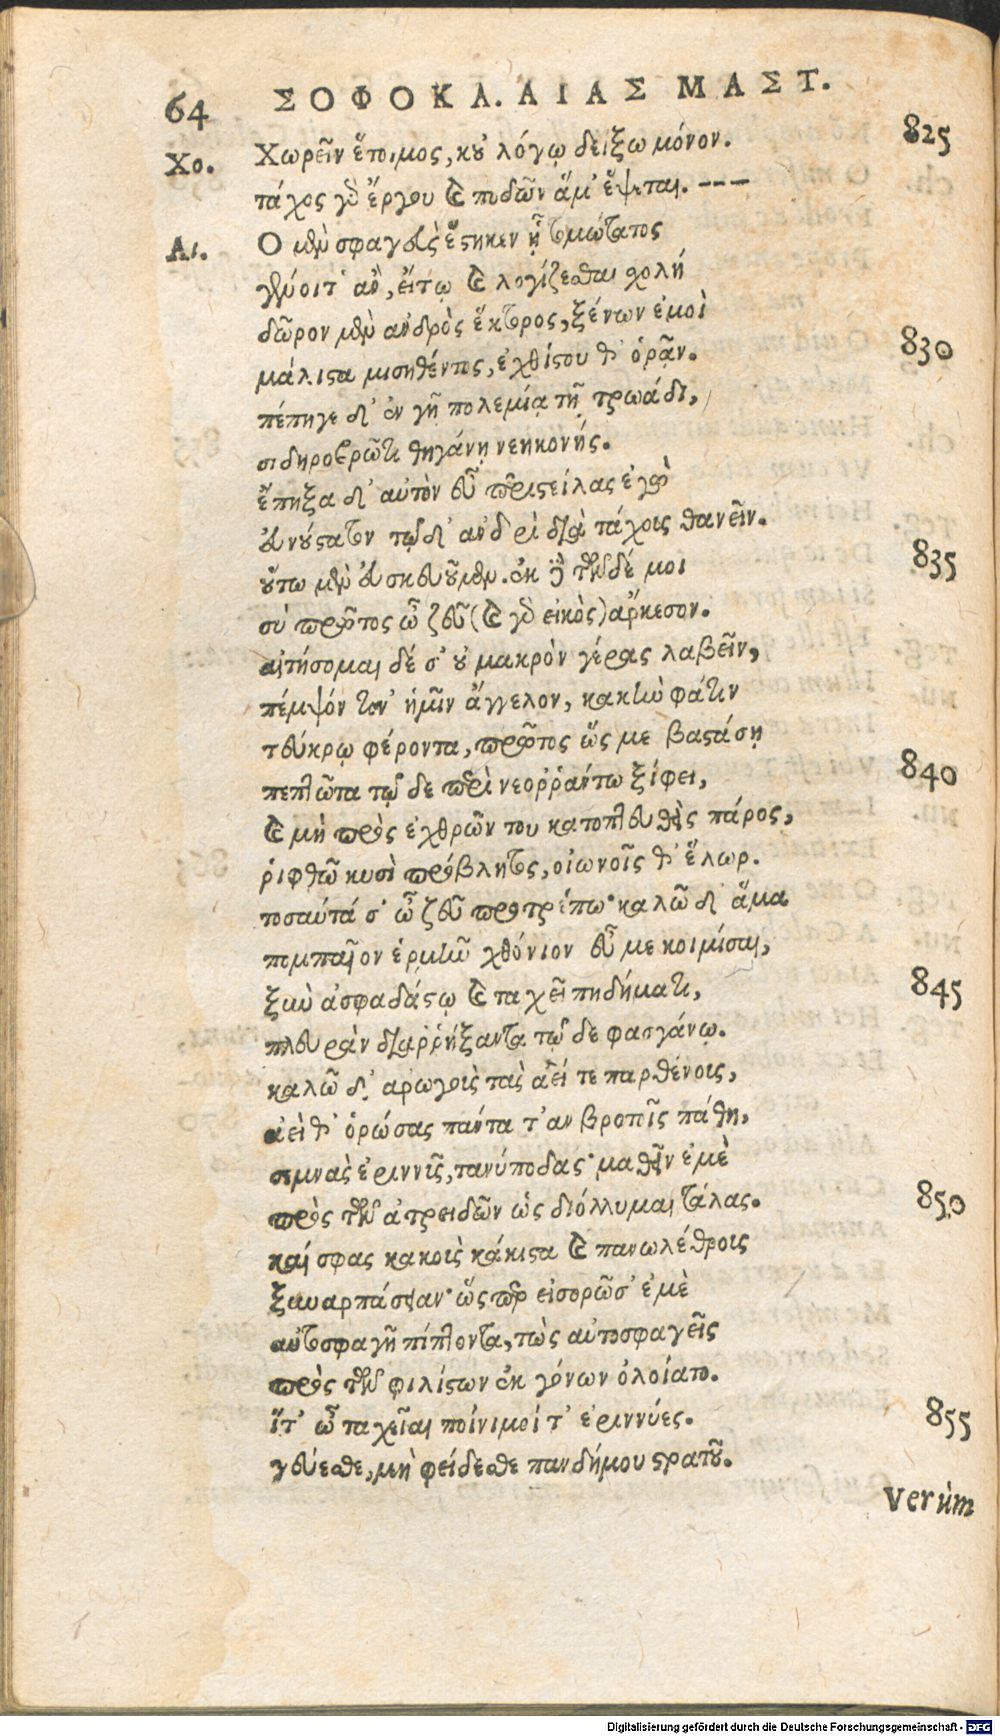 64 ΣΟΦΟΚΛ. ΑΙΑΣ ΜΑΣΤ.
Χο. Χωρεῖν ἕτοιμος, κοὐ λόγῳ δείξω μόνον. 825
τάχος γὸ ἔργου καὶ ποδῶν ἅμ' ἕψεται. ---
Αι. Ο μὲν σφαγεὺς ἕστηκεν ᾗ τομώτατος
γένοιτ' ἂν, εἴτῳ καὶ λογίζεσθαι σχολή
δῶρον μὲν ἀνδρὸς ἕκτορος, ξένων ἐμοὶ
μάλιστα μισηθέντος, ἐχθίστου θ' ὁρᾷν. 830
πέπηγε δ' ἐν γῇ πολεμίᾳ τῇ τρωάδι,
σιδηροβρῶτι θηγάνῃ νεηκονής.
ἔπηξα δ' αὐτὸν εὖ περιστείλας ἐγὼ
εὐνούστατον τῷδ' ἀνδρὶ διὰ τάχους θανεῖν.
οὕτω μὲν εὐσκευοῦμεν. ἐκ δὲ τῶνδέ μοι 835
σὺ πρῶτος ὦ ζεῦ (καὶ γὸ εἰκὸς) ἄρκεσον.
αἰτήσομαι δέ σ' οὐ μακρὸν γέρας λαβεῖν,
πέμψόν τιν' ἡμῖν ἄγγελον, κακὴν φάτιν
τεύκρῳ φέροντα, πρῶτος ὥς με βαστάσῃ
πεπτῶτα τῷδε περὶ νεοῤῥάντω ξίφει, 840
καὶ μὴ πρὸς ἐχθρῶν του κατοπτευθεὶς πάρος,
ῥιφθῶ κυσὶ πρόβλητος, οἰωνοῖς θ' ἕλωρ.
τοσαῦτά σ' ὦ ζεῦ προστρέπω· καλῶ δ' ἅμα
πομπαῖον ἑρμῆν χθόνιον εὖ με κοιμίσαι,
ξὺν ἀσφαδάστῳ καὶ ταχεῖ πηδήματι, 845
πλευρὰν διαῤῥήξαντα τῷδε φασγάνῳ.
καλῶ δ' ἀρωγοὺς τὰς ἀεί τε παρθένους,
ἀεὶ θ' ὁρώσας πάντα τ'αν βροτοῖς πάθη,
σεμνὰς ἐριννῦς, τανύποδας· μαθεῖν ἐμὲ
πρὸς τῶν ἀτρειδῶν ὡς διόλλυμαι τάλας. 850
καί σφας κακοὺς κάκιστα καὶ πανωλέθρους
ξυναρπάσειαν· ὥσπερ εἰσορῶσ' ἐμὲ
αὐτοσφαγῆ πίπτοντα, τὼς αὐτοσφαγεῖς
πρὸς τῶν φιλίστων ἐκ γόνων ὀλοίατο.
ἴτ' ὦ ταχεῖαι ποίνιμοί τ' ἐριννύες. 855
γεύεσθε, μὴ φείδεσθε πανδήμου στρατοῦ.
Verùm
Digitalisierung gefördert durch die Deutsche Forschungsgemeinschaft - DFG